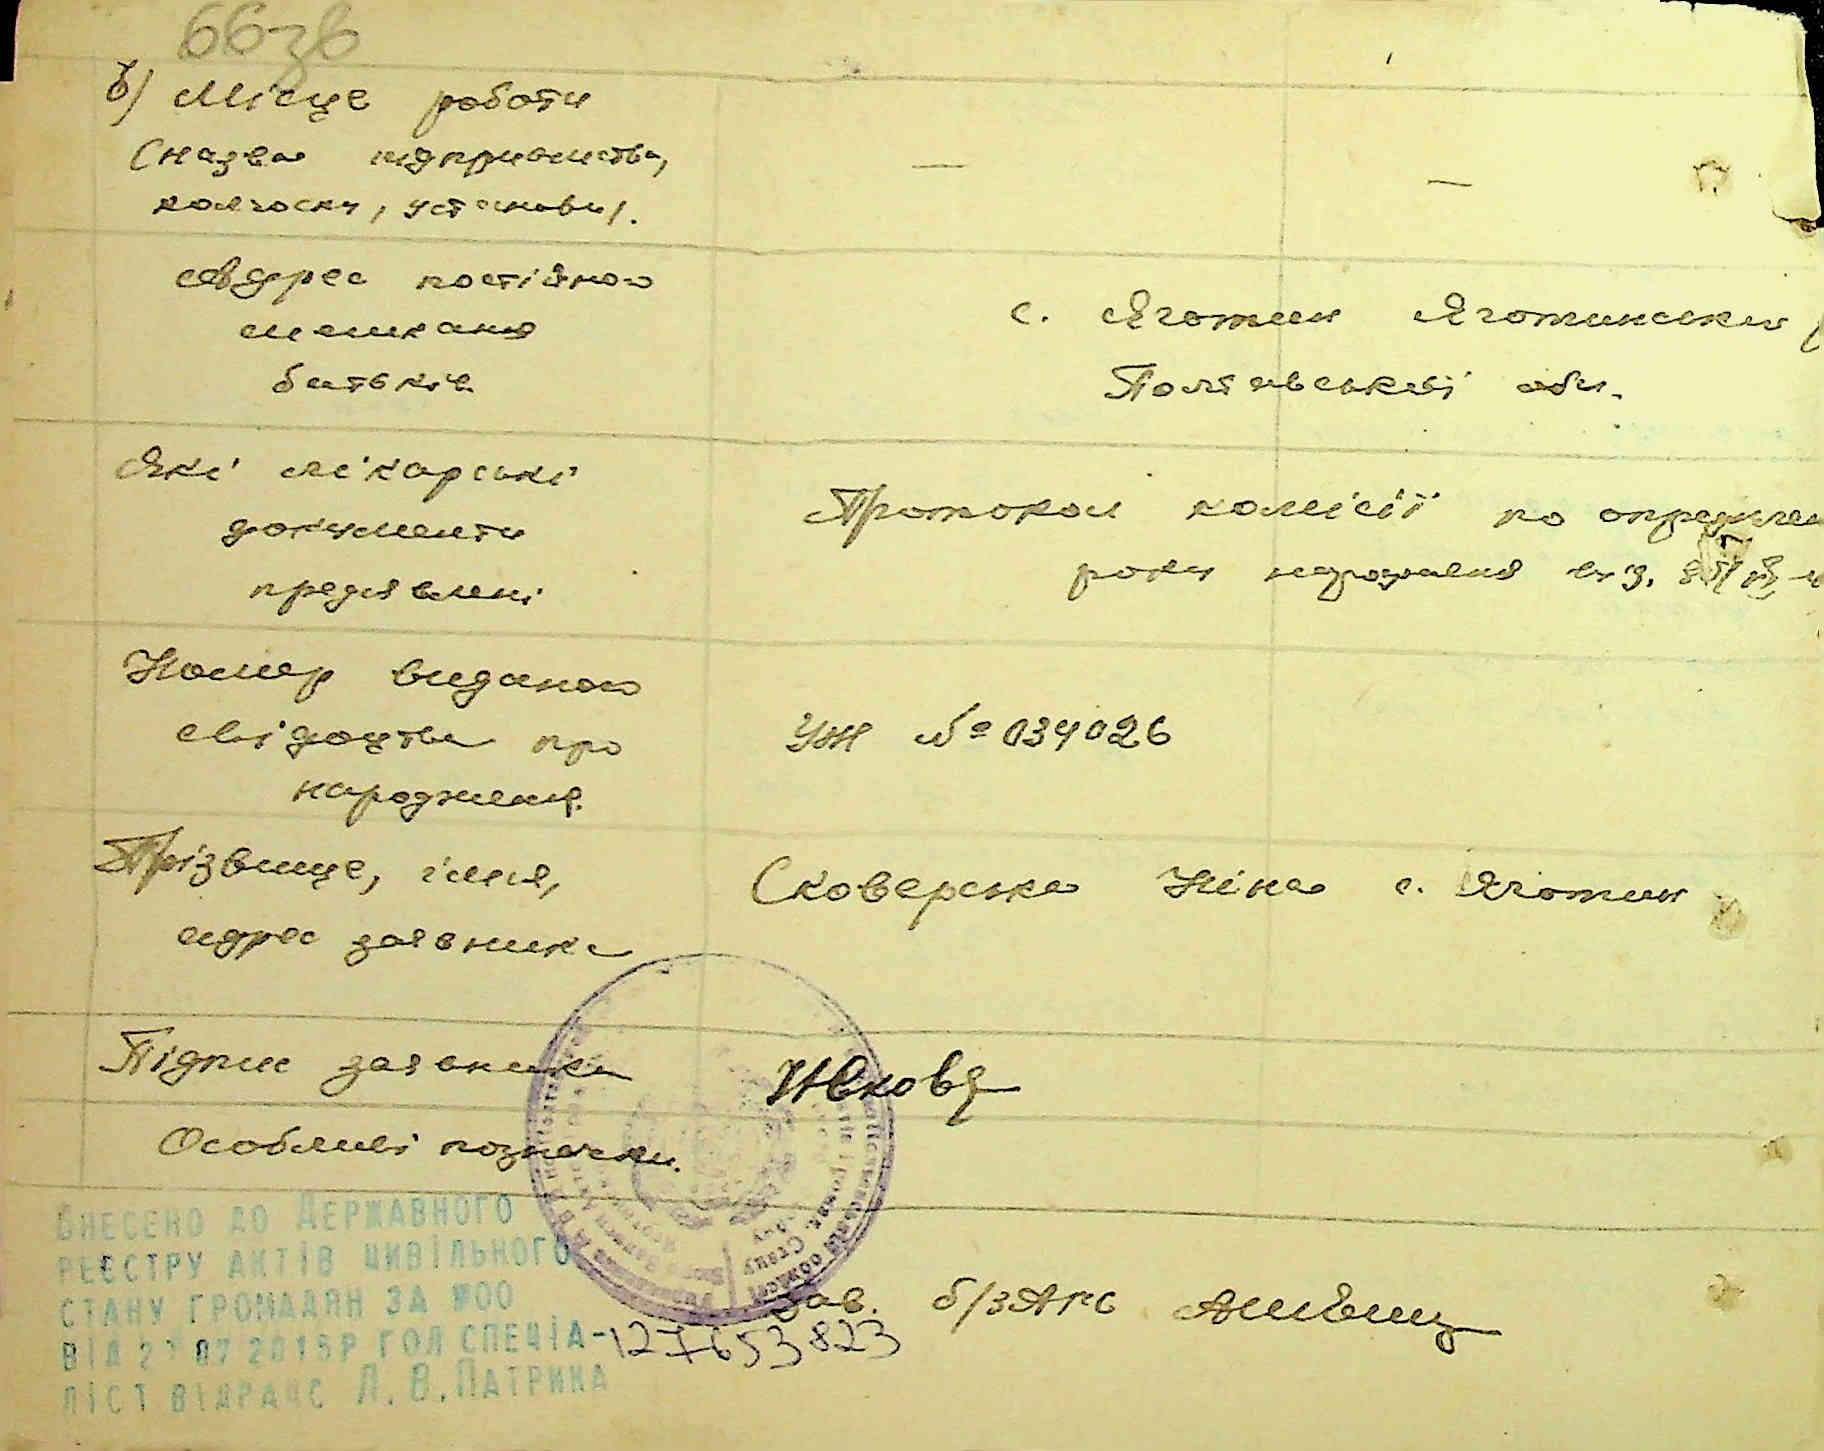 66зв
б) Місце роботи
(назва підприємства,
колгоспу, установи).
— —
Адрес постійного
мешкання
батьків
с. Яготин Яготинський р
Полтавської обл.
Які лікарські
документи
предявлені
Протокол комісії по определен
року народження від
Номер виданого
свідоцтва про
народження.
УЖ № 034026
Прізвище, імя,
адрес заявника
Сковерська Ніна с. Яготин
Підпис заявника
Особливі позначки.
Зав. б/зАГС
Внесено до Державного
реєстру актів цивільного
стану громадян за №00
127653823
від 07 2015р гол специа-
ліст відрацс Л. В. Патрика